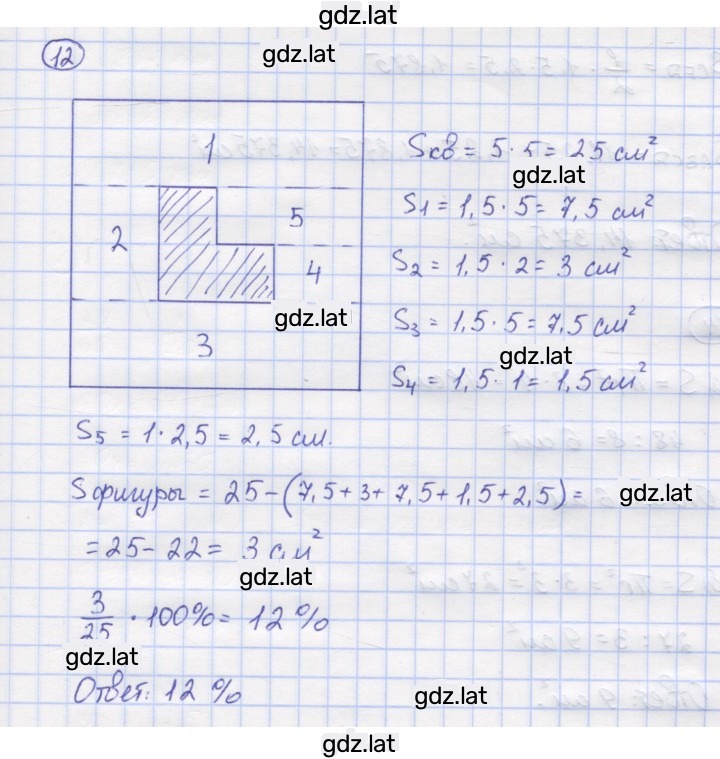 gdz.lat
12
gdz.lat
1
2
5
4
3
gdz.lat
Sкв = 5 · 5 = 25 см²
gdz.lat
S1 = 1,5 · 5 = 7,5 см²
S2 = 1,5 · 2 = 3 см²
S3 = 1,5 · 5 = 7,5 см²
gdz.lat
S4 = 1,5 · 1 = 1,5 см²
S5 = 1 · 2,5 = 2,5 см.
Sфигуры = 25 - (7,5 + 3 + 7,5 + 1,5 + 2,5) =
gdz.lat
= 25 - 22 = 3 см²
gdz.lat
3/25 · 100% = 12 %
gdz.lat
Ответ: 12 %
gdz.lat
gdz.lat